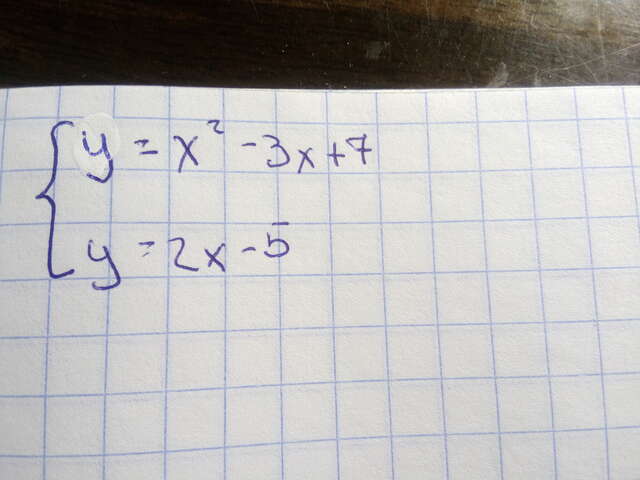 y = x² - 3x + 7
y = 2x - 5